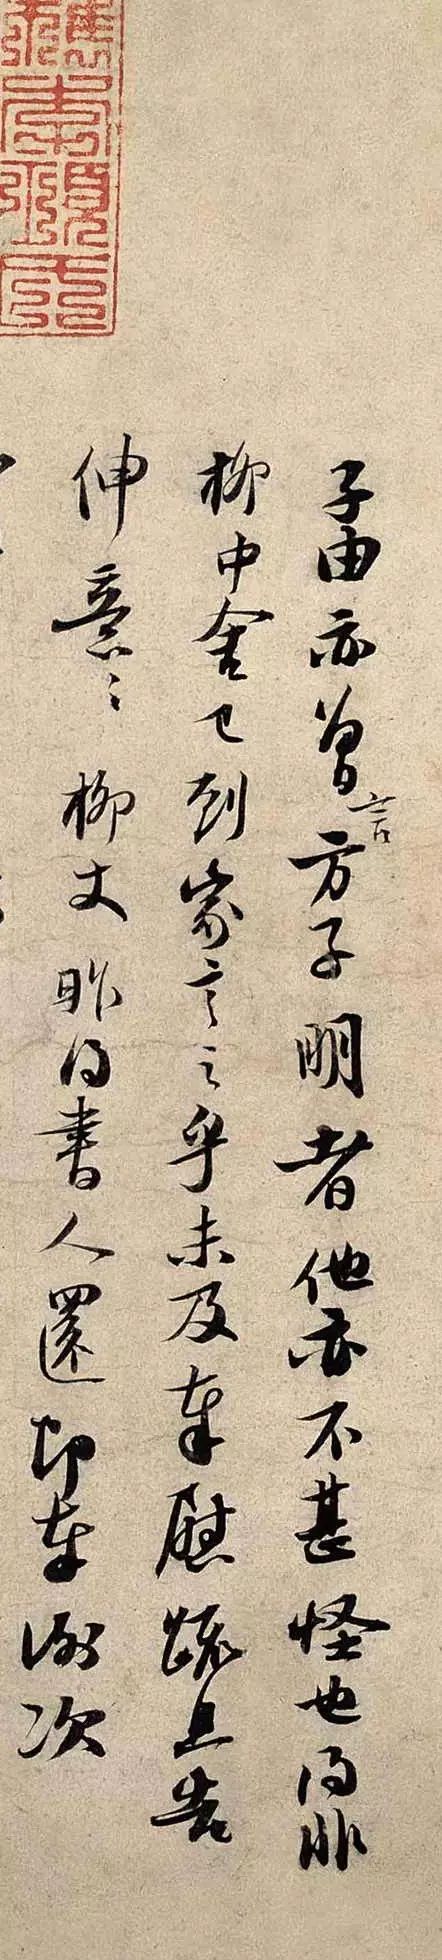 子由亦曾言方子明者他亦不甚怪也得非
柳中舍已到家言之乎未及奉慰疏且告
伸意伸意柳丈昨得書人還即奉謝次